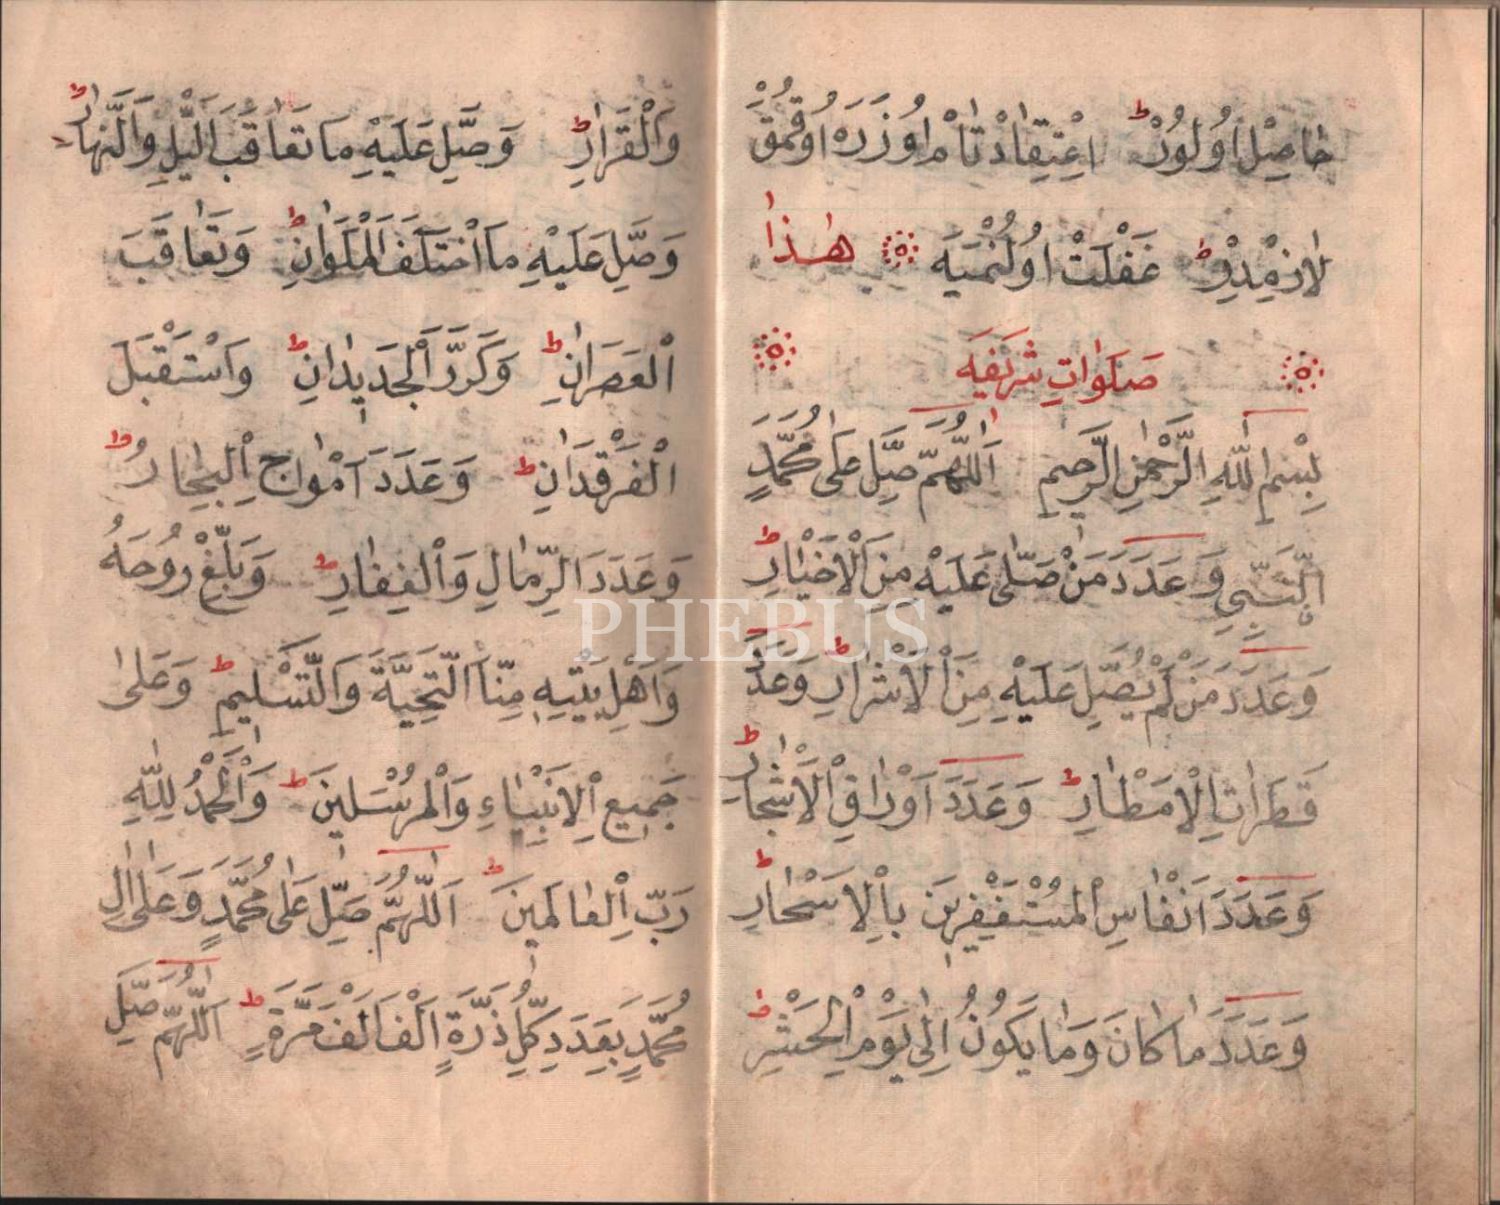 حَاصِلْ اُولُورْ ط اِعْتِقَادْ تَامْ اُوزَرَه اُوقُمَقْ
لَازِمْدِرْ ط غَفْلَتْ اُولُنْمَيَه هٰذَا
صَلَوَاتِ شَرِيفَه
بِسْمِ اللّٰهِ الرَّحْمٰنِ الرَّحِيمِ اَللّٰهُمَّ صَلِّ عَلٰى مُحَمَّدٍ
النَّبِيِّ وَعَدَدَ مَنْ صَلّٰى عَلَيْهِ مِنَ الْاَخْيَارِ ط
وَعَدَدَ مَنْ لَمْ يُصَلِّ عَلَيْهِ مِنَ الْاَشْرَارِ ط وَعَدَدَ
قَطَرَاتِ الْاَمْطَارِ ط وَعَدَدَ اَوْرَاقِ الْاَشْجَارِ ط
وَعَدَدَ اَنْفَاسِ الْمُسْتَغْفِرِينَ بِالْاَسْحَارِ ط
وَعَدَدَ مَا كَانَ وَمَا يَكُونُ اِلٰى يَوْمِ الْحَشْرِ
وَالْقَرَارِ ط وَصَلِّ عَلَيْهِ مَا تَعَاقَبَ الَّيْلِ وَالنَّهَارِ ط
وَصَلِّ عَلَيْهِ مَا اخْتَلَفَ الْمَلَوَانِ ط وَتَعَاقَبَ
الْعَصَرَانِ ط وَكَرَّرَ الْجَدِيدَانِ ط وَاسْتَقْبَلَ
الْفَرْقَدَانِ ط وَعَدَدَ اَمْوَاجِ الْبِحَارِ ط
وَعَدَدَ الرِّمَالِ وَالْقِفَارِ ط وَبَلِّغْ رُوحَهُ
وَاَهْلِ بَيْتِهِ مِنَّا التَّحِيَّةَ وَالتَّسْلِيمِ ط وَعَلٰى
جَمِيعِ الْاَنْبِيَاءِ وَالْمُرْسَلِينَ ط وَالْحَمْدُ لِلّٰهِ
رَبِّ الْعَالَمِينَ ط اَللّٰهُمَّ صَلِّ عَلٰى مُحَمَّدٍ وَعَلٰى اٰلِ
مُحَمَّدٍ بِعَدَدِ كُلِّ ذَرَّةٍ اَلْفَ اَلْفَ مَرَّةٍ ط اَللّٰهُمَّ صَلِّ
PHEBUS